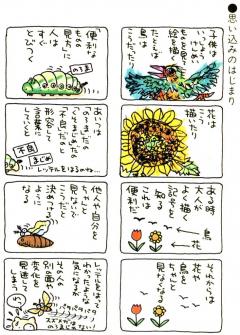 ●思い込みのはじまり
子供は
いろんな
ものを見て
絵を描く
たとえば
鳥は
こうだった
花は
こう
描いたり
ある時
大人が
よく描く
記号を
知る
これは
便利だ
鳥
花
それからは
花や
鳥を
ちゃんと
見なくなる
便利な
ものの
見方に
人は
すぐ
とびつく
のろま
あいつは
「のろま」だの
「くそまじめ」だの
「不良」だのと
形容して
言葉に
していくと
不良
まじめ
レッテルをはるのね…
他人や自分を
ちゃんと
見ないで
こうだと
決めつける
ように
なる
レッテルをはって
わかったような
気になり
その人の
別の面や
変化を
見逃して
しまう